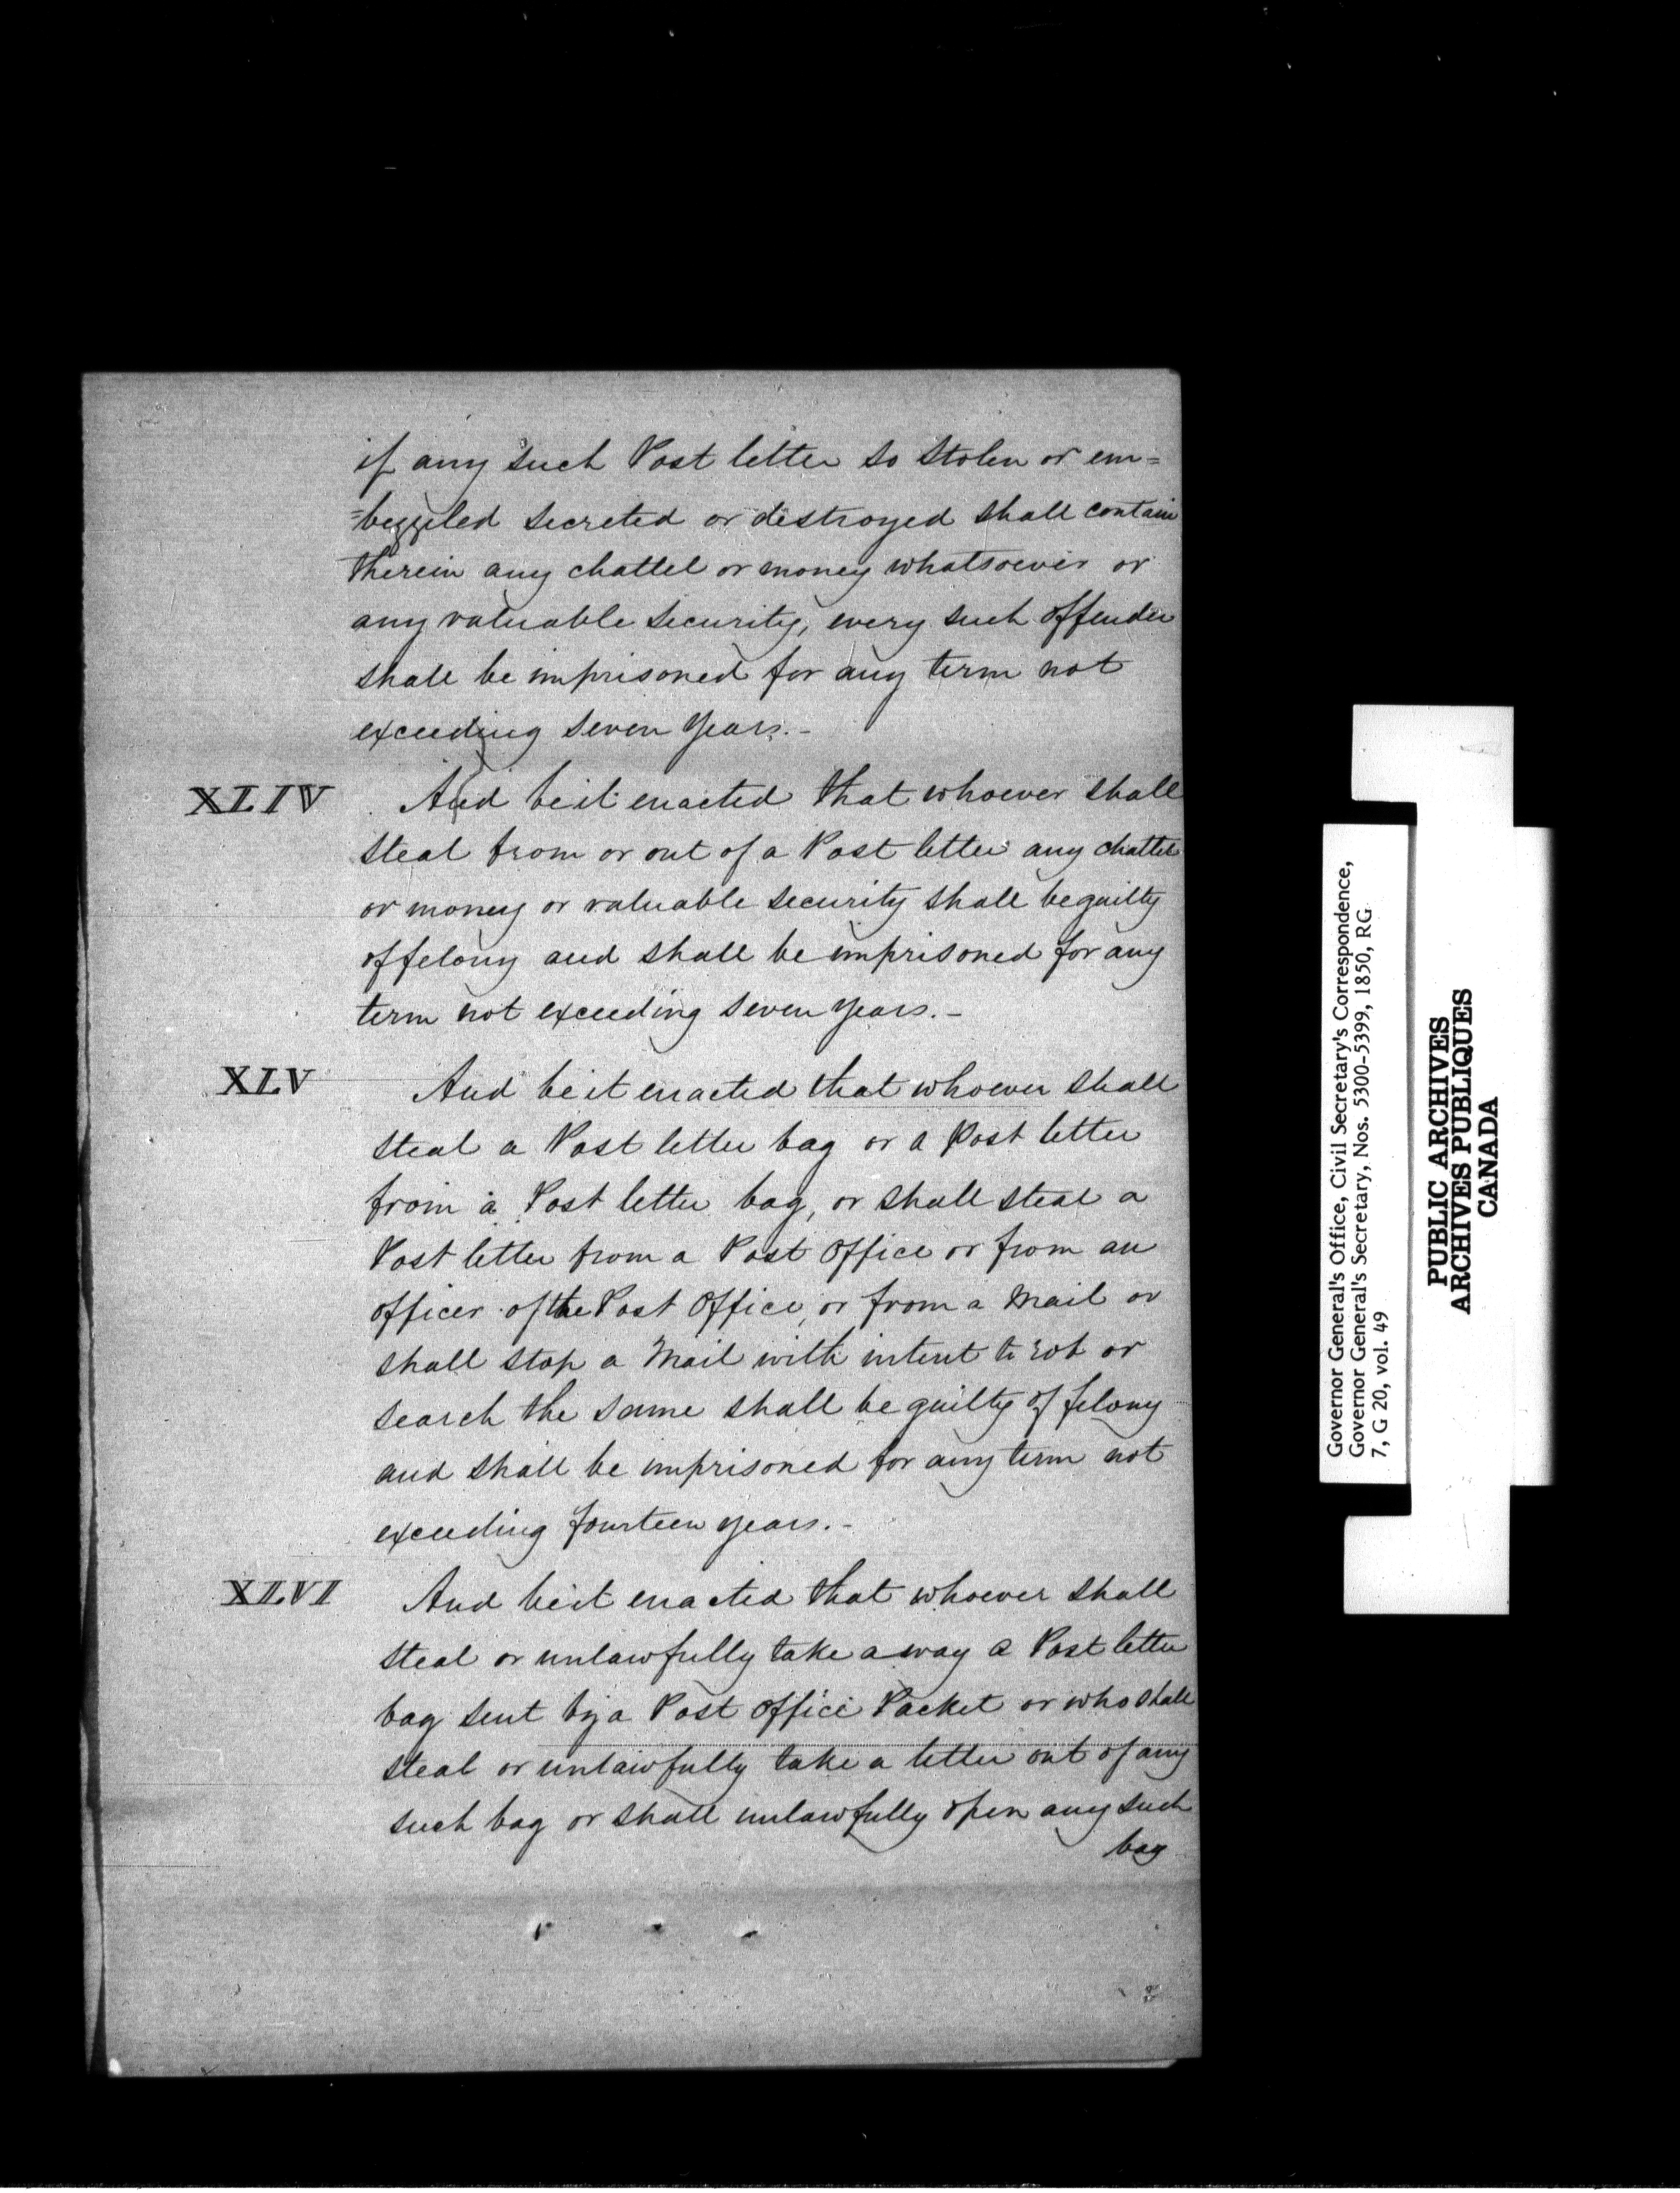 if any such Post letter so stolen or em=
=bezzled secreted or destroyed shall contain
therein any chattel or money whatsoever or
any valuable security, every such offender
shall be imprisoned for any term not
exceeding seven years.-
XLIV And be it enacted that whoever shall
steal from or out of a Post letter any chattel
or money or valuable security shall be guilty
of felony and shall be imprisoned for any
term not exceeding seven years.-
XLV And be it enacted that whoever shall
steal a Post letter bag or a Post letter
from a Post letter bag, or shall steal a
Post letter from a Post Office or from an
officer of the Post Office, or from a Mail or
shall stop a Mail with intent to rob or
search the same shall be guilty of felony
and shall be imprisoned for any term not
exceeding fourteen years.-
XLVI And be it enacted that whoever shall
steal or unlawfully take away a Post letter
bag sent by a Post Office Packet or who shall
steal or unlawfully take a letter out of any
such bag or shall unlawfully open any such
bag
Governor General's Office, Civil Secretary's Correspondence,
Governor General's Secretary, Nos. 5300-5399, 1850, RG
7, G 20, vol. 49
PUBLIC ARCHIVES
ARCHIVES PUBLIQUES
CANADA